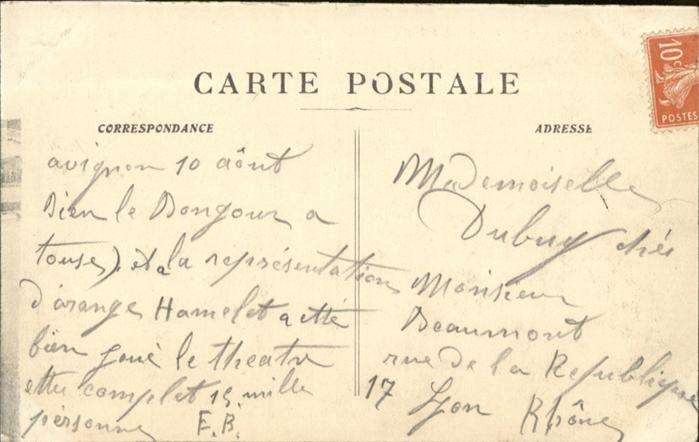 CARTE POSTALE
CORRESPONDANCE
avignon 10 aôut
Bien le Bongour a
touse), et a la représentation
d'orange Hamelet a etté
bien goué le theatre
ettu complet 15 mille
personne E.B.
ADRESSE
10c
POSTES
Mademoiselle
Dubuy chés
Monsieur
Beaumont
rue de la Republique
17 Lyon Rhône